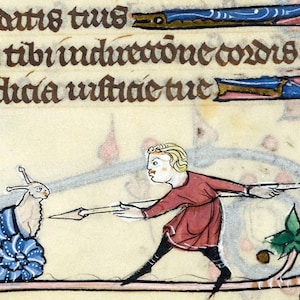 datis tuis
tibi in directiōne cordis
dicia iusticie tue